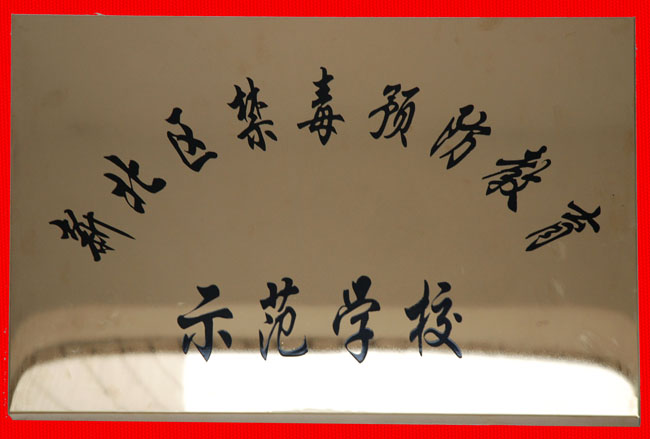 新北区禁毒预防教育
示范学校